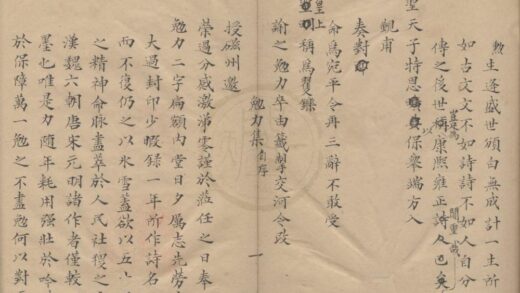 生逢盛世頒白無成計一生所
如古文文不如詩詩不如人自分
傳之後世稱康熙雍正詩人已矣
豈足為
以
聖天子特恩保舉端方入
覲甫
奏對
命為宛平令再三辭不敢受
皇上
稱為矍鑠
諭之勉力卒由交河令改
勉力集自序
一
授磁州邀
榮過分感激涕零謹於蒞任之日奉
勉力二字扁額內堂日夕厲志先勞
大過封印少暇録一年所作詩名
而不復仍之以氷雪蓋欲以五
之精神命脉盡萃於人民社稷之
漢魏六朝唐宋元明諸作者僅較
墨也唯是力隨年耗用強壯於吟
於保障萬一勉之不盡勉何以對